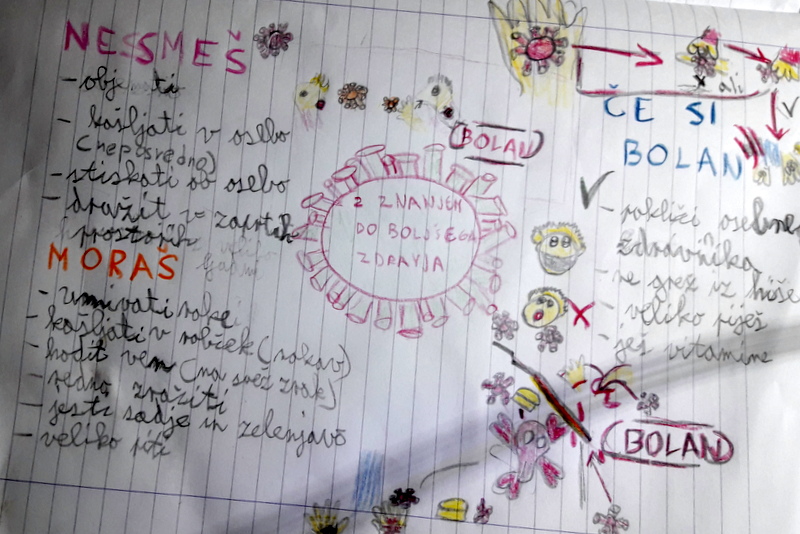 NESSMEŠ
- objemati
- kašljati v osebo
(neposredno)
- stiskati ob osebo
- dražit v zaprtih
prostorih
MORAŠ
- umivati roke
- kašljati v robček (rokav)
- hodit ven (na svež zrak)
- redno zračiti
- jesti sadje in zelenjavo
- veliko piti
BOLAN
Z ZNANJEM
DO BOLJŠEGA
ZDRAVJA
ali
ČE SI
BOLAN
- pokliči osebnega
zdravnika
- ne greš iz hiše
- veliko piješ
- ješ vitamine
BOLAN